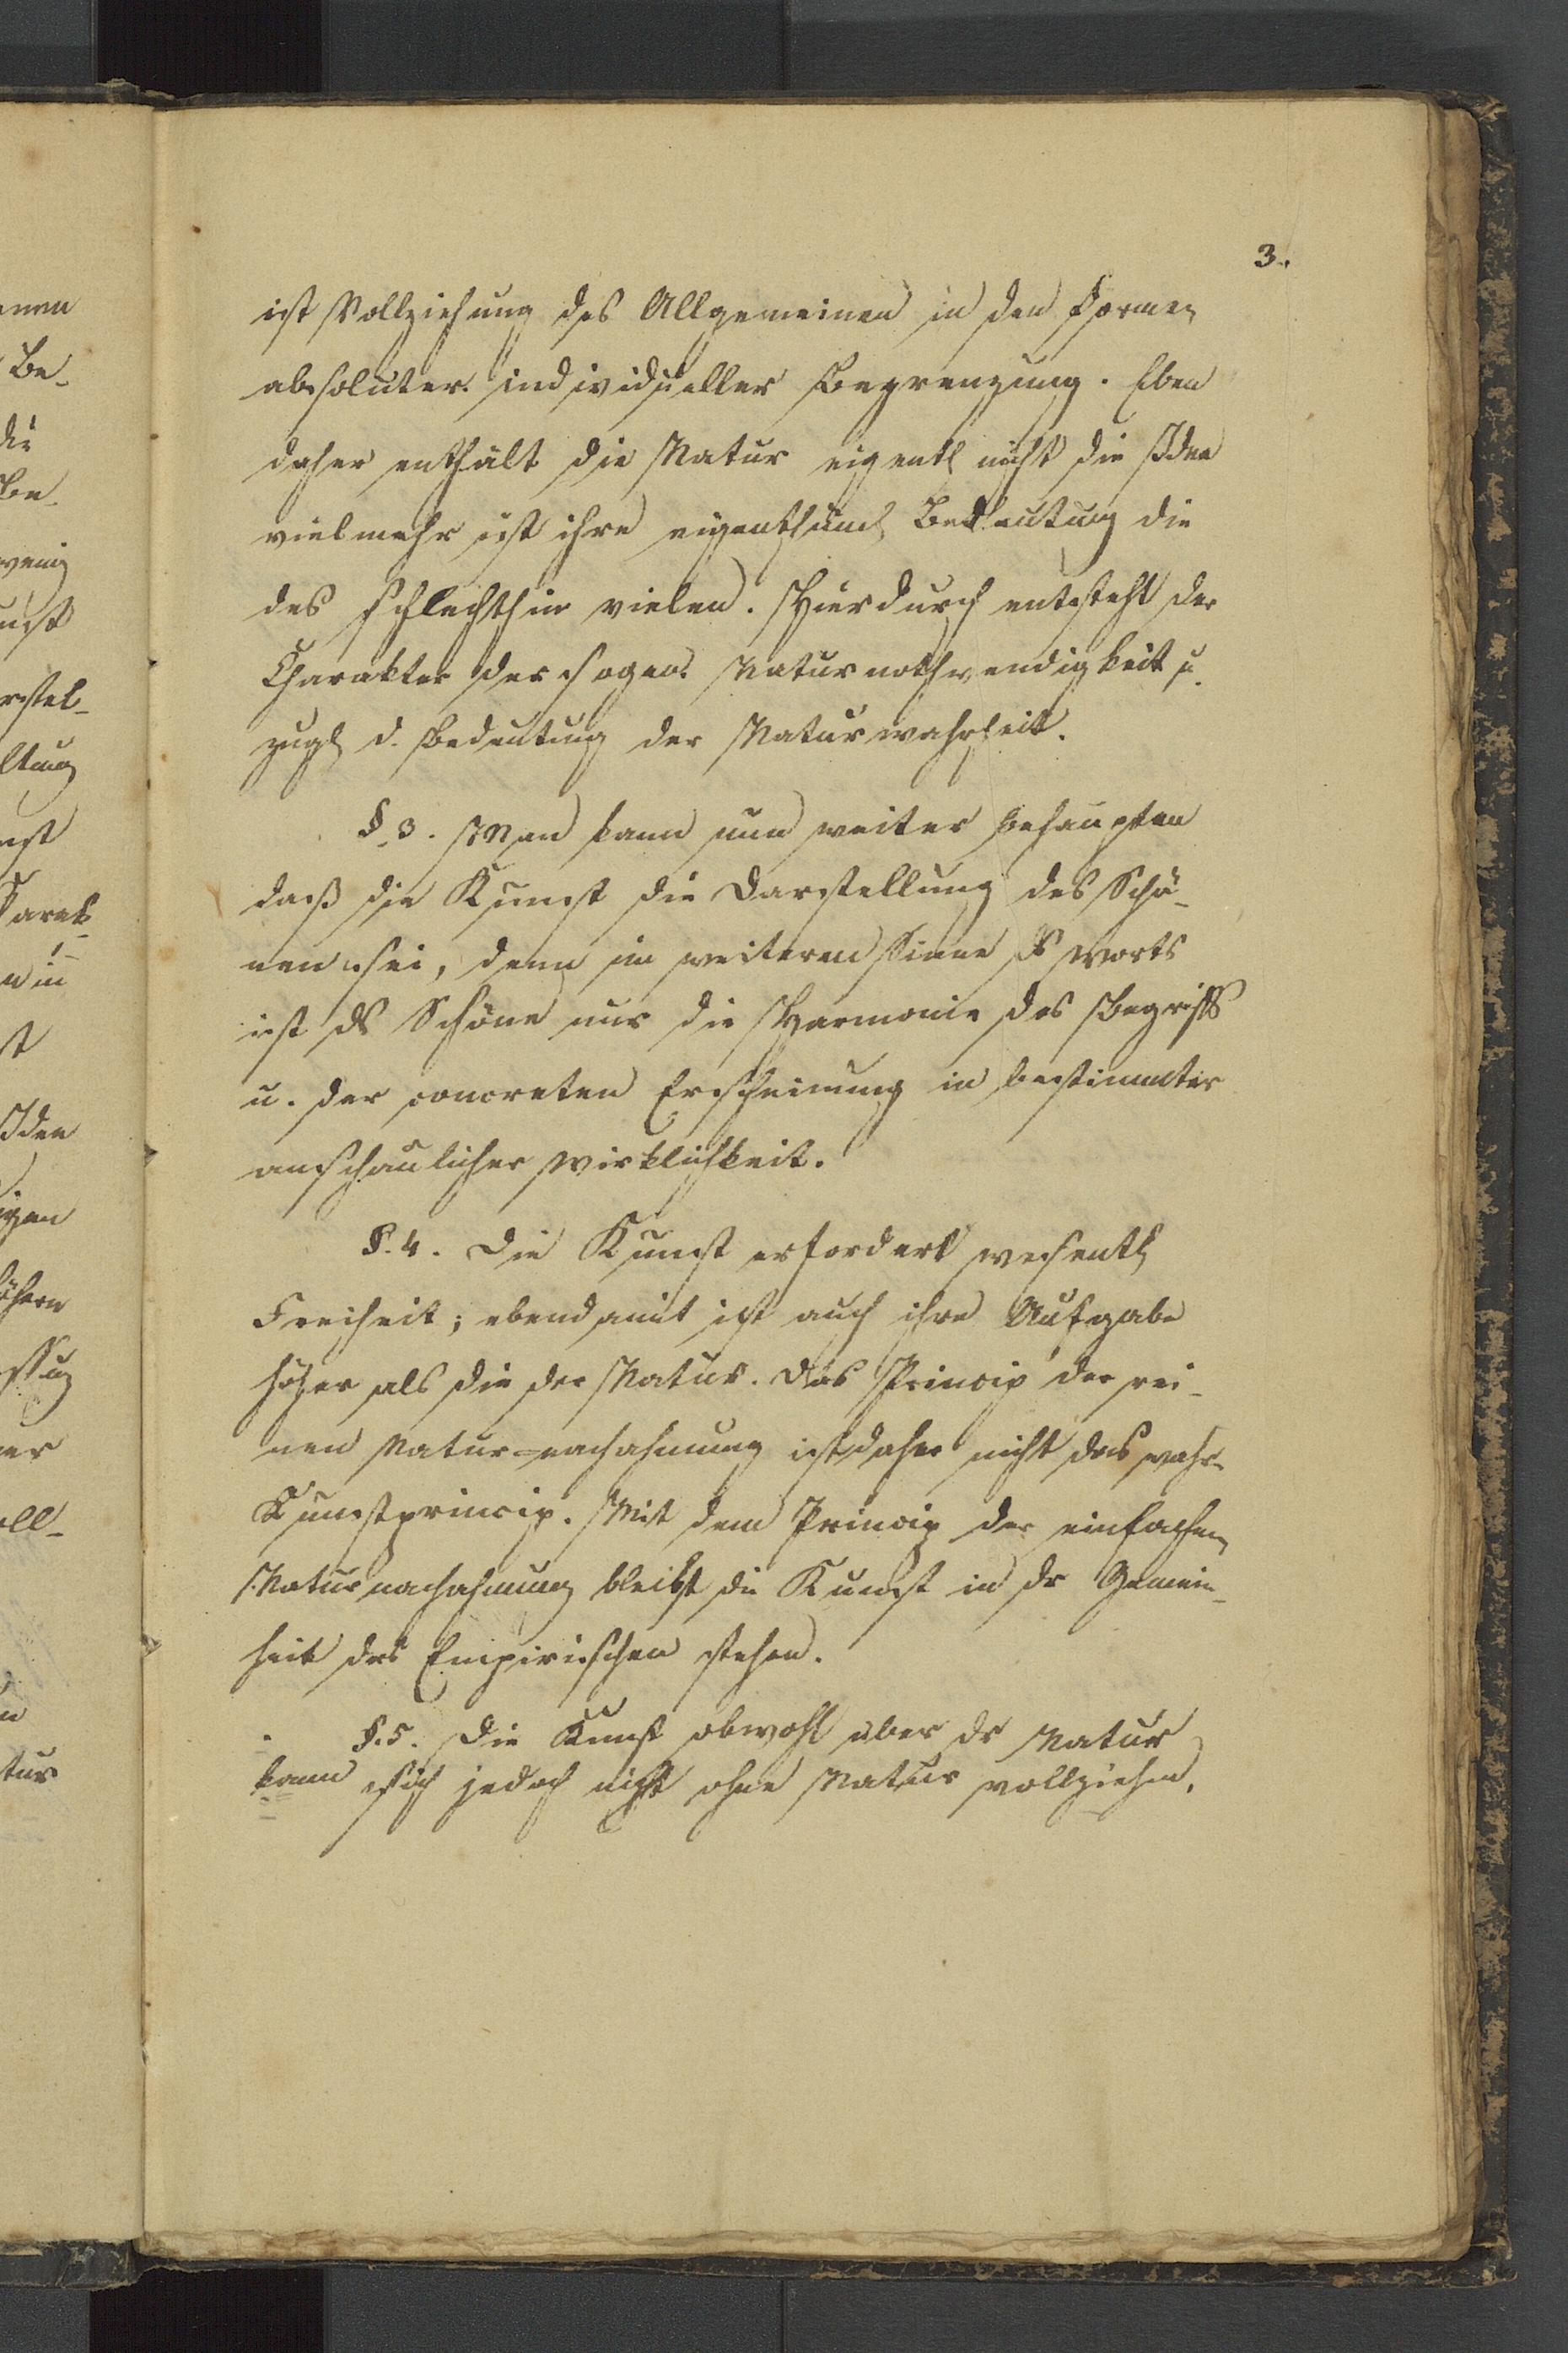 3.
ist Vollziehung des Allgemeinen in den Formen
absoluter individueller Begrenzung. Eben
daher enthält die Natur eigentl nicht die Idee
vielmehr ist ihre eigenthüml Bedeutung die
des schlechthin vielen. Hierdurch entsteht der
Charakter der sogen. Naturnothwendigkeit u.
zugl d. Bedeutung der Naturwahrheit.
§. 3. Man kann nun weiter behaupten
daß die Kunst die Darstellung des Schö-
nen sei, denn im weiteren Sinne ds Worts
ist ds Schöne nur die Harmonie des Begriffs
u. der concreten Erscheinung in bestimmter
anschaulicher Wirklichkeit.
§. 4. Die Kunst erfordert wesentl
Freiheit; ebendamit ist auch ihre Aufgabe
höher als die der Natur. Das Princip der rei-
nen Natur-nachahmung ist daher nicht das wahre
Kunstprincip. Mit dem Princip der einfachen
Naturnachahmung bleibt die Kunst in dr Gemein-
heit des Empirischen stehen.
§. 5. Die Kunst obwohl über dr Natur
kann sich jedoch nicht ohne Natur vollziehen.